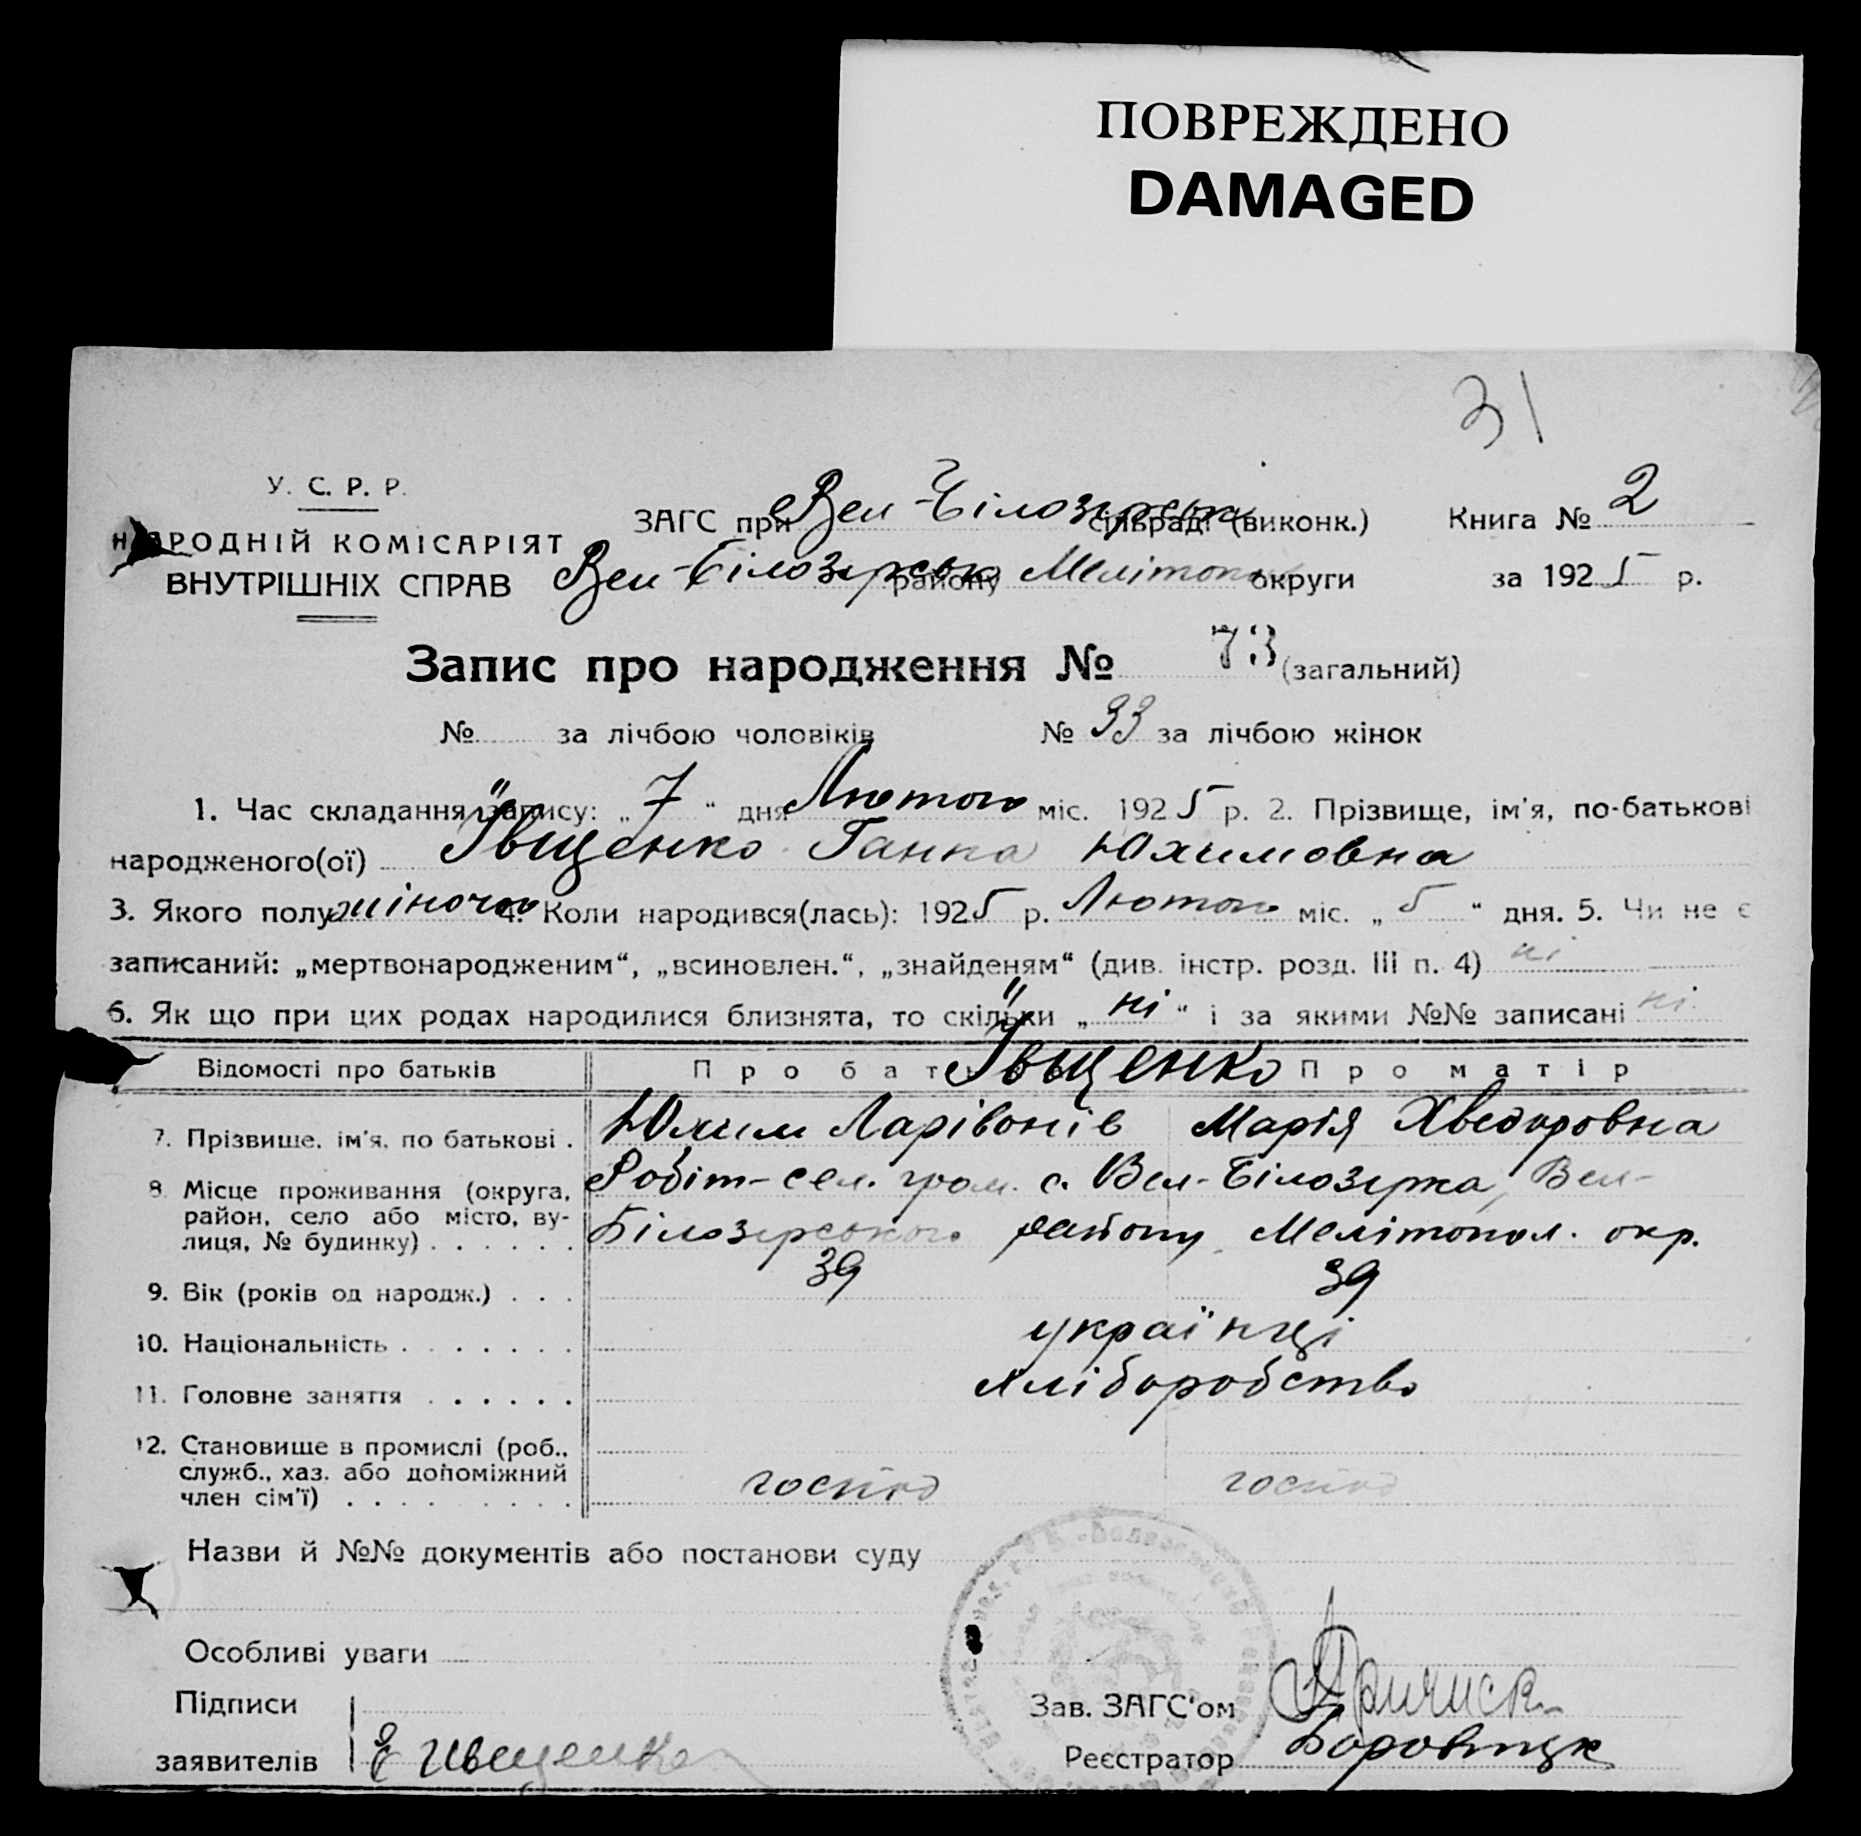 ПОВРЕЖДЕНО
DAMAGED
31
У. С. Р. Р.
НАРОДНІЙ КОМІСАРІЯТ
ВНУТРІШНІХ СПРАВ
ЗАГС при Вел-Білозірськ сільраді (виконк.) Книга № 2
Вел-Білозірськ району Мелітоп округи за 1925 р.
Запис про народження № 73 (загальний)
№ за лічбою чоловіків № 33 за лічбою жінок
1. Час складання запису: „7“ дня Лютого міс. 1925 р. 2. Прізвище, ім'я, по-батькові
народженого(ої) Ївщенко Ганна Юхимовна
3. Якого полу жіночого 4. Коли народився(лась): 1925 р. Лютого міс. „5“ дня. 5. Чи не є
записаний: „мертвонародженим“, „всиновлен.“, „знайденям“ (див. інстр. розд. III п. 4) ні
6. Як що при цих родах народилися близнята, то скільки „ні“ і за якими №№ записані ні
Відомості про батьків Про батька Про матір
Ївщенко
7. Прізвище, ім'я, по батькові . Юхим Ларівонів Марія Хведоровна
8. Місце проживання (округа, район, село або місто, вулиця, № будинку) . . . . . . Робіт-сел. гром. с. Вел-Білозірка, Вел-
Білозірського району Мелітопол. окр.
9. Вік (років од народж.) . . . 39 39
10. Національність . . . . . . . українці
11. Головне заняття . . . . . . хліборобство
12. Становище в промислі (роб., служб., хаз. або допоміжний член сім'ї) . . . . . . . . . господ господ
Назви й №№ документів або постанови суду
Особливі уваги
Підписи
заявителів Є Ивщенко
Зав. ЗАГС'ом
Реєстратор